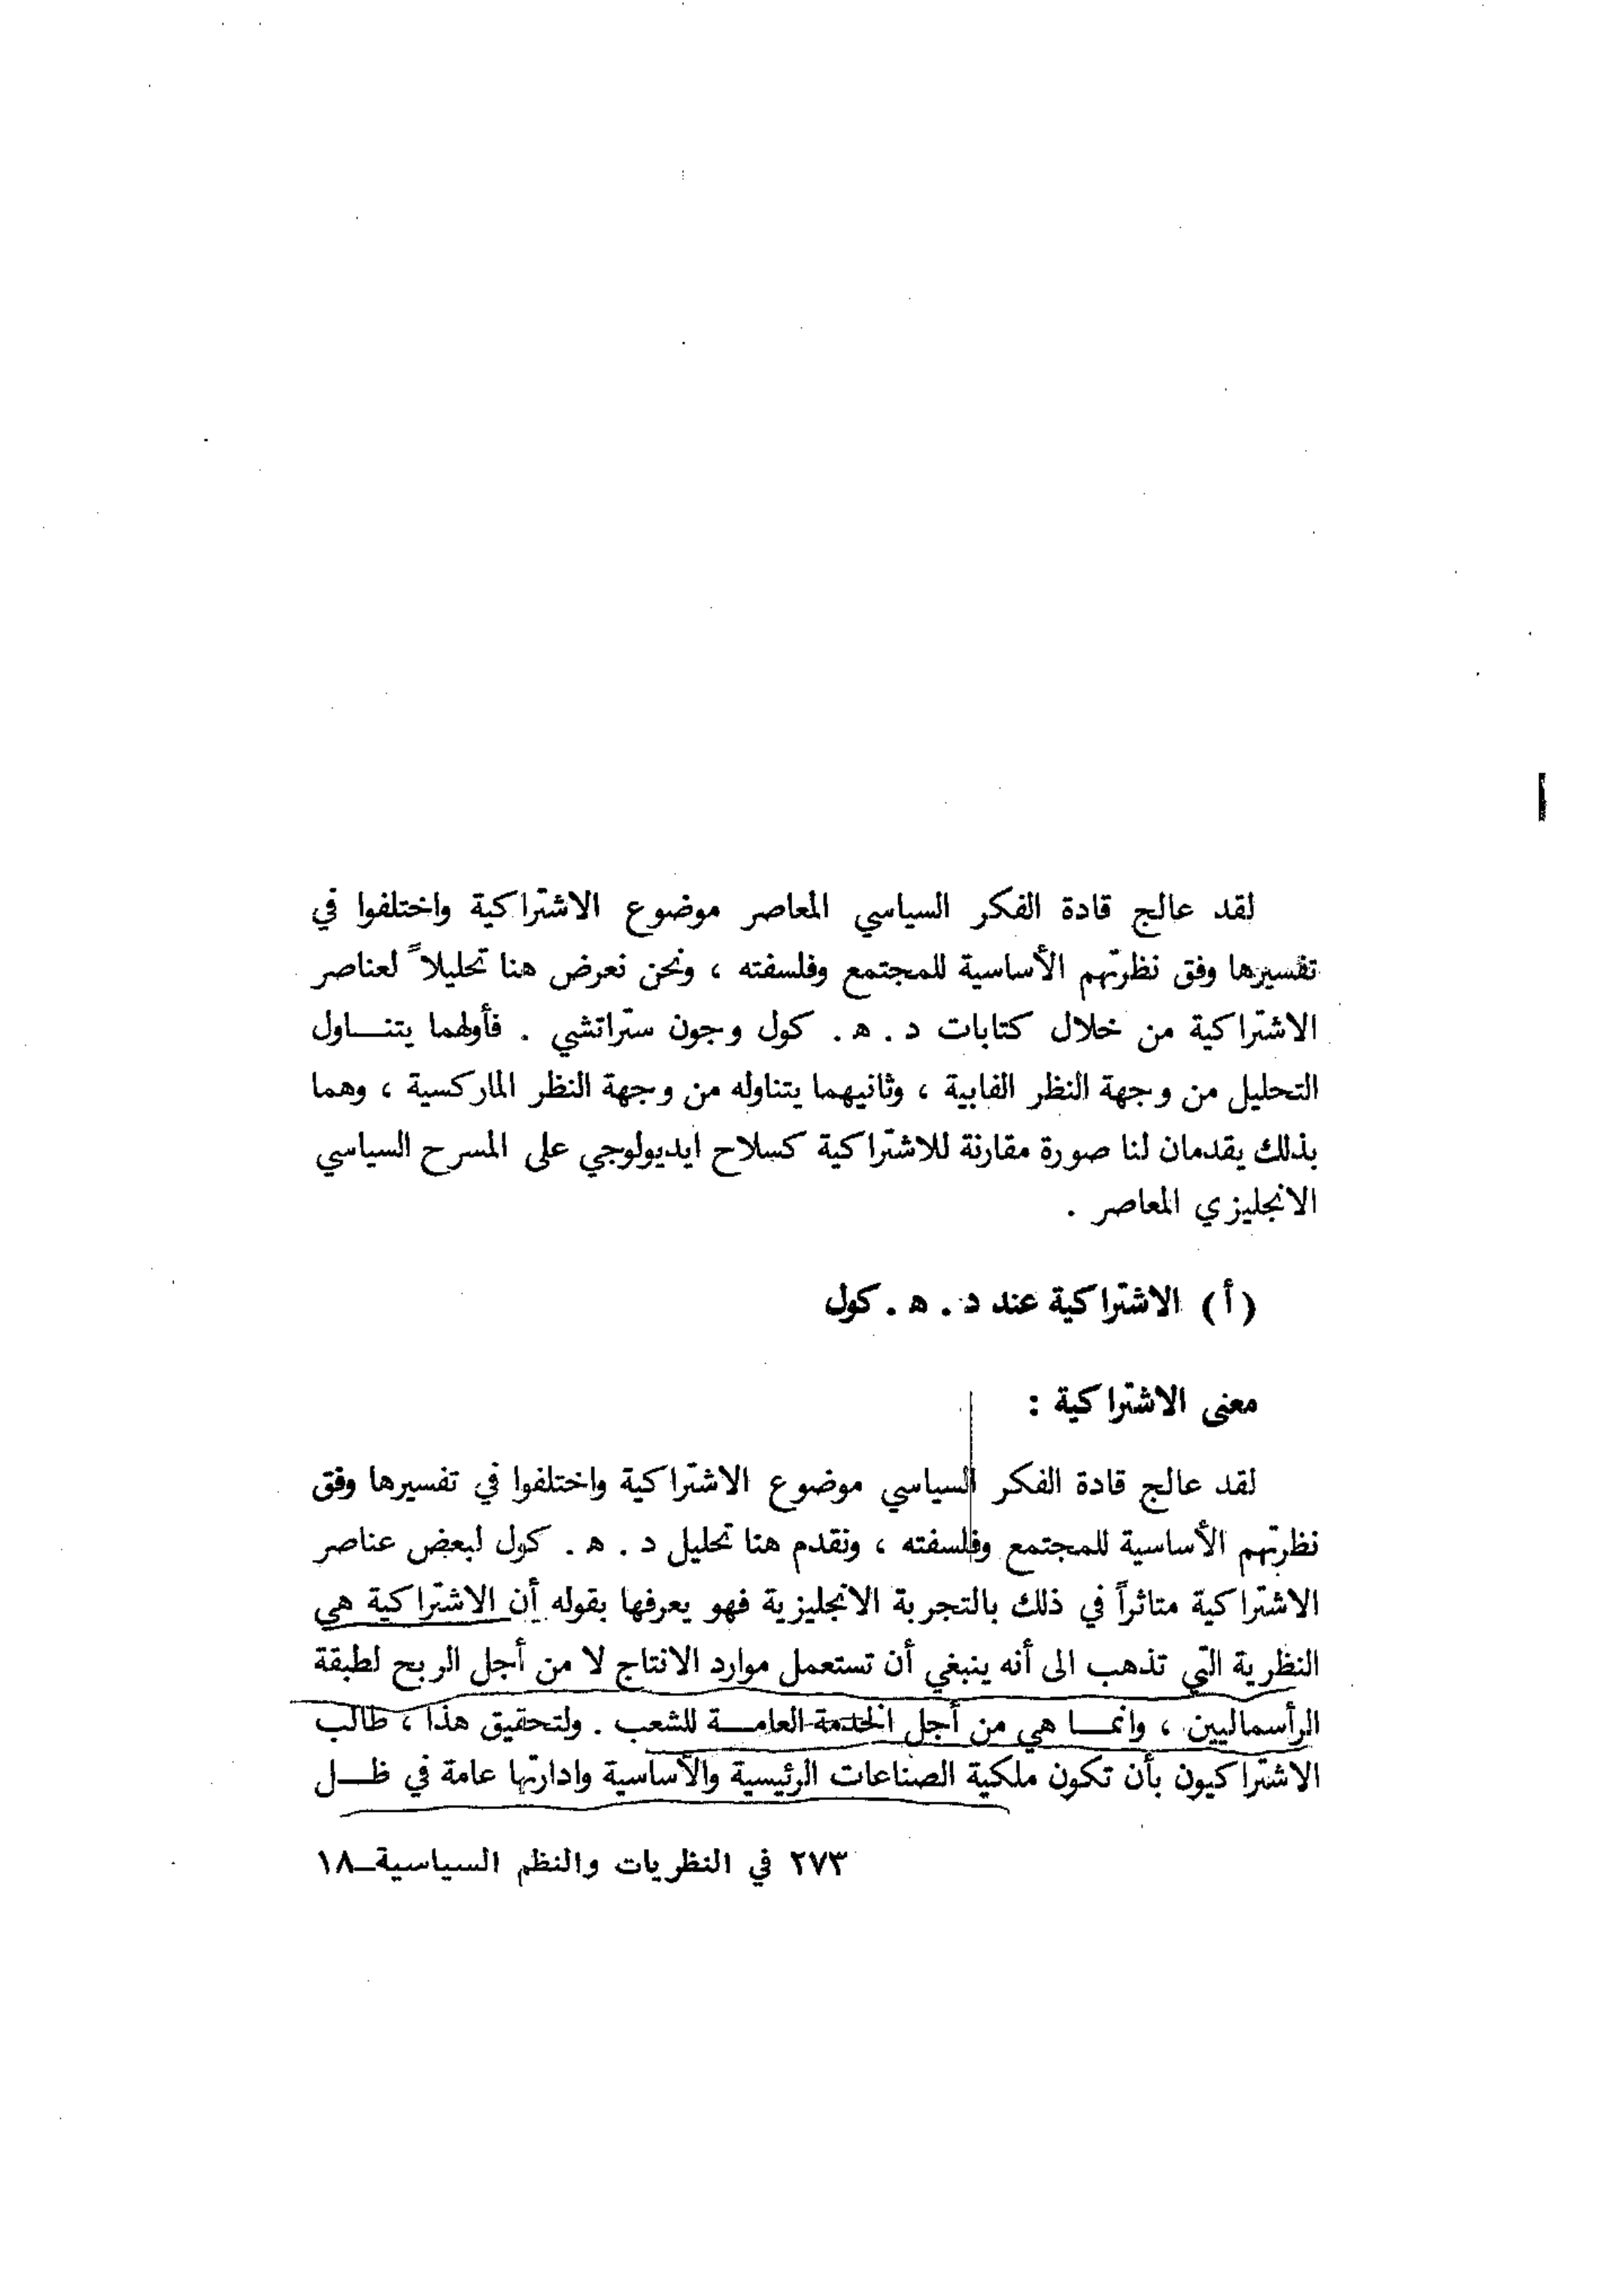 لقد عالج قادة الفكر السياسي المعاصر موضوع الاشتراكية واختلفوا في
تفسيرها وفق نظرتهم الأساسية للمجتمع وفلسفته ، ونحن نعرض هنا تحليلاً لعناصر
الاشتراكية من خلال كتابات د . ه . كول وجون ستراتشي . فأولهما يتنــاول
التحليل من وجهة النظر الفابية ، وثانيهما يتناوله من وجهة النظر الماركسية ، وهما
بذلك يقدمان لنا صورة مقارنة للاشتراكية كسلاح ايديولوجي على المسرح السياسي
الانجليزي المعاصر .
(أ) الاشتراكية عند د . ه . كول
معنى الاشتراكية :
لقد عالج قادة الفكر السياسي موضوع الاشتراكية واختلفوا في تفسيرها وفق
نظرتهم الأساسية للمجتمع وفلسفته ، ونقدم هنا تحليل د . ه . كول لبعض عناصر
الاشتراكية متاثراً في ذلك بالتجربة الانجليزية فهو يعرفها بقوله أن الاشتراكية هي
النظرية التي تذهب الى أنه ينبغي أن تستعمل موارد الانتاج لا من أجل الربح لطبقة
الرأسماليين ، وانمــا هي من أجل الخدمة العامــة للشعب . ولتحقيق هذا ، طالب
الاشتراكيون بأن تكون ملكية الصناعات الرئيسية والأساسية وادارتها عامة في ظــل
٢٧٣ في النظريات والنظم السياسية_١٨